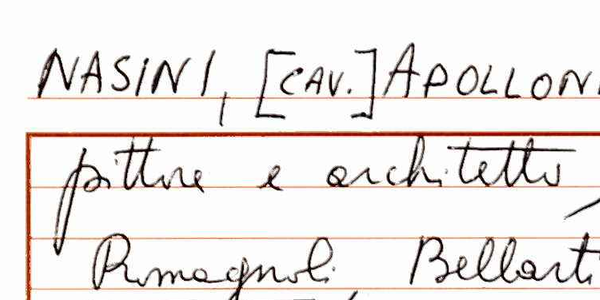 NASINI, [CAV.] APOLLONI
pittore e architetto
Romagnoli Bellarti